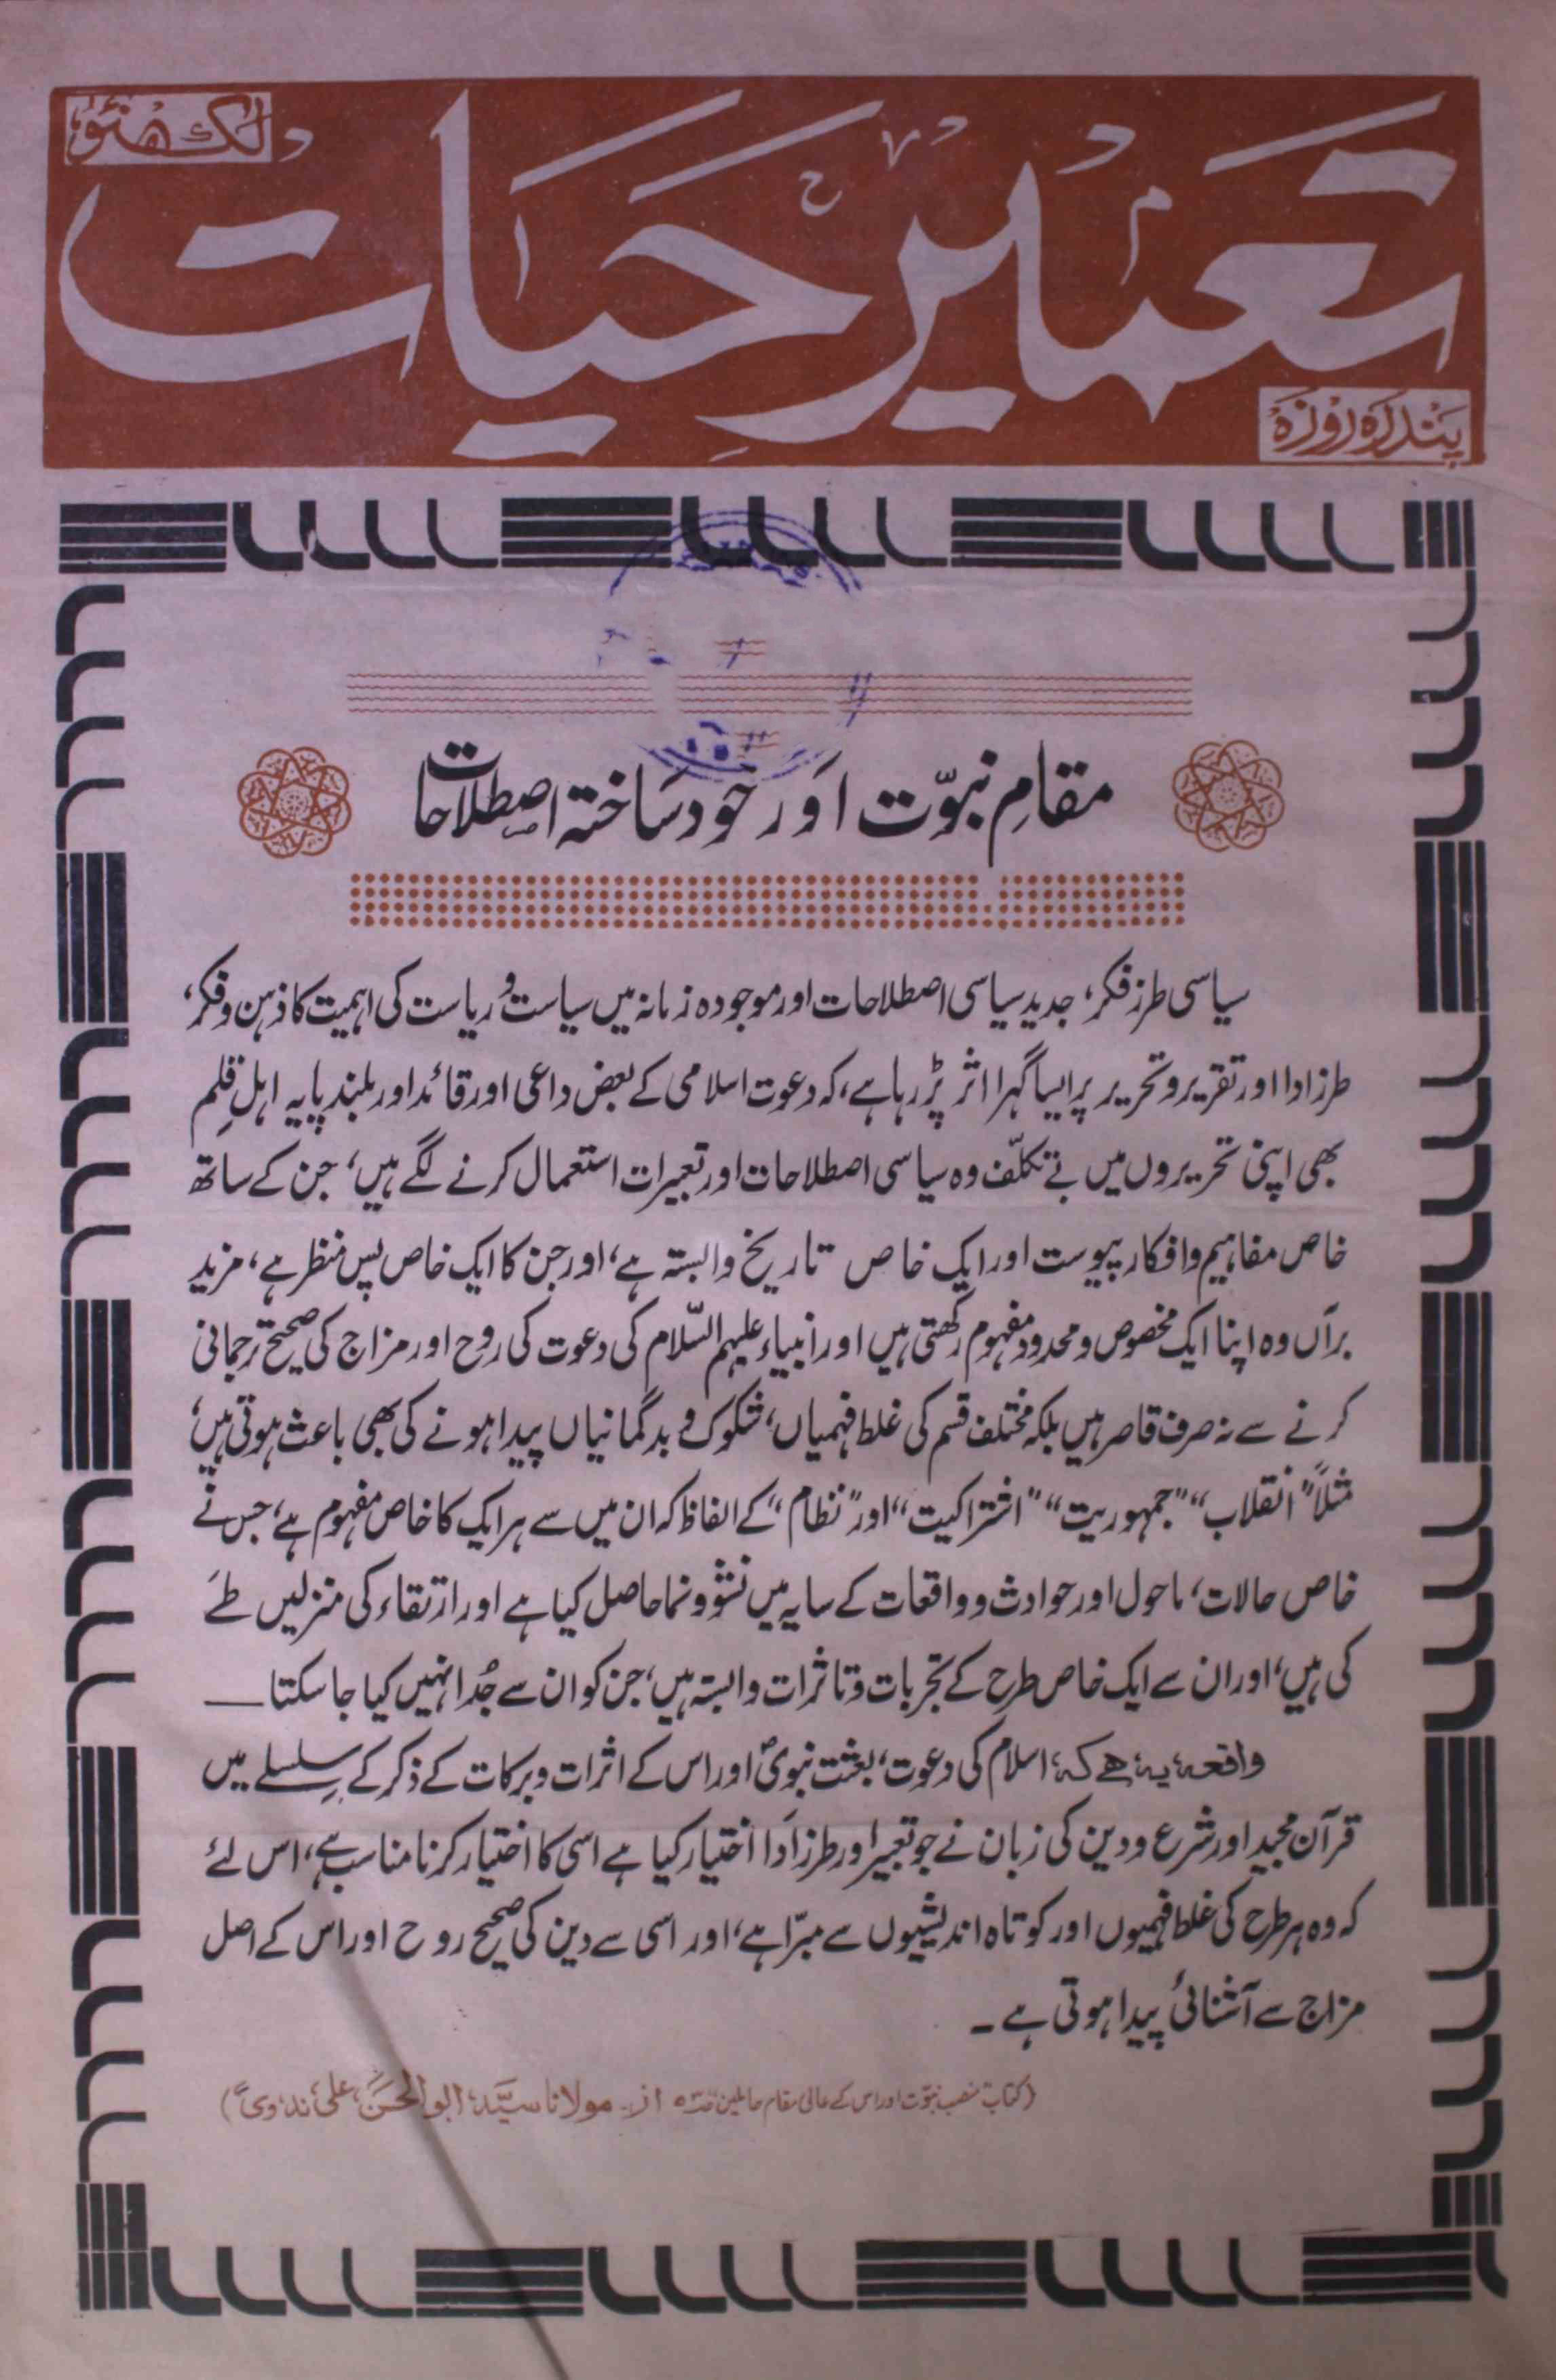 لکھنؤ
تعمیر حیات
پندرہ روزہ
مقامِ نبوّت اور خود ساختہ اصطلاحات
سیاسی طرز فکر، جدید سیاسی اصطلاحات اور موجودہ زمانہ میں سیاست و ریاست کی اہمیت کا ذہن و فکر،
طرز ادا اور تقریر و تحریر پر ایسا گہرا اثر پڑ رہا ہے، کہ دعوت اسلامی کے بعض داعی اور قائد اور بلند پایہ اہلِ قلم
بھی اپنی تحریروں میں بے تکلّف وہ سیاسی اصطلاحات اور تعبیرات استعمال کرنے لگے ہیں، جن کے ساتھ
خاص مفاہیم و افکار پیوست اور ایک خاص تاریخ وابستہ ہے، اور جن کا ایک خاص پس منظر ہے، مزید
برآں وہ اپنا ایک مخصوص و محدود مفہوم رکھتی ہیں اور انبیاء علیہم السّلام کی دعوت کی روح اور مزاج کی صحیح ترجمانی
کرنے سے نہ صرف قاصر ہیں بلکہ مختلف قسم کی غلط فہمیاں، شکوک و بدگمانیاں پیدا ہونے کی بھی باعث ہوتی ہیں،
مثلاً "انقلاب" "جمہوریت" "اشتراکیت" اور "نظام" کے الفاظ کہ ان میں سے ہر ایک کا خاص مفہوم ہے، جس نے
خاص حالات، ماحول اور حوادث و واقعات کے سایہ میں نشوونما حاصل کیا ہے اور ارتقاء کی منزلیں طے
کی ہیں، اور ان سے ایک خاص طرح کے تجربات و تاثرات وابستہ ہیں، جن کو ان سے جُدا نہیں کیا جا سکتا ــــ
واقعہ یہ ہے کہ، اسلام کی دعوت، بعثت نبویؐ اور اس کے اثرات و برکات کے ذکر کے سلسلے میں
قرآن مجید اور شرع و دین کی زبان نے جو تعبیر اور طرز ادا اختیار کیا ہے اسی کا اختیار کرنا مناسب ہے، اس لئے
کہ وہ ہر طرح کی غلط فہمیوں اور کوتاہ اندیشیوں سے مبرّا ہے، اور اسی سے دین کی صحیح روح اور اس کے اصل
مزاج سے آشنائی پیدا ہوتی ہے ۔
(کتاب منصب نبوّت اور اس کے عالی مقام حاملین از۔ مولانا سیّد ابوالحسن علی ندوی)